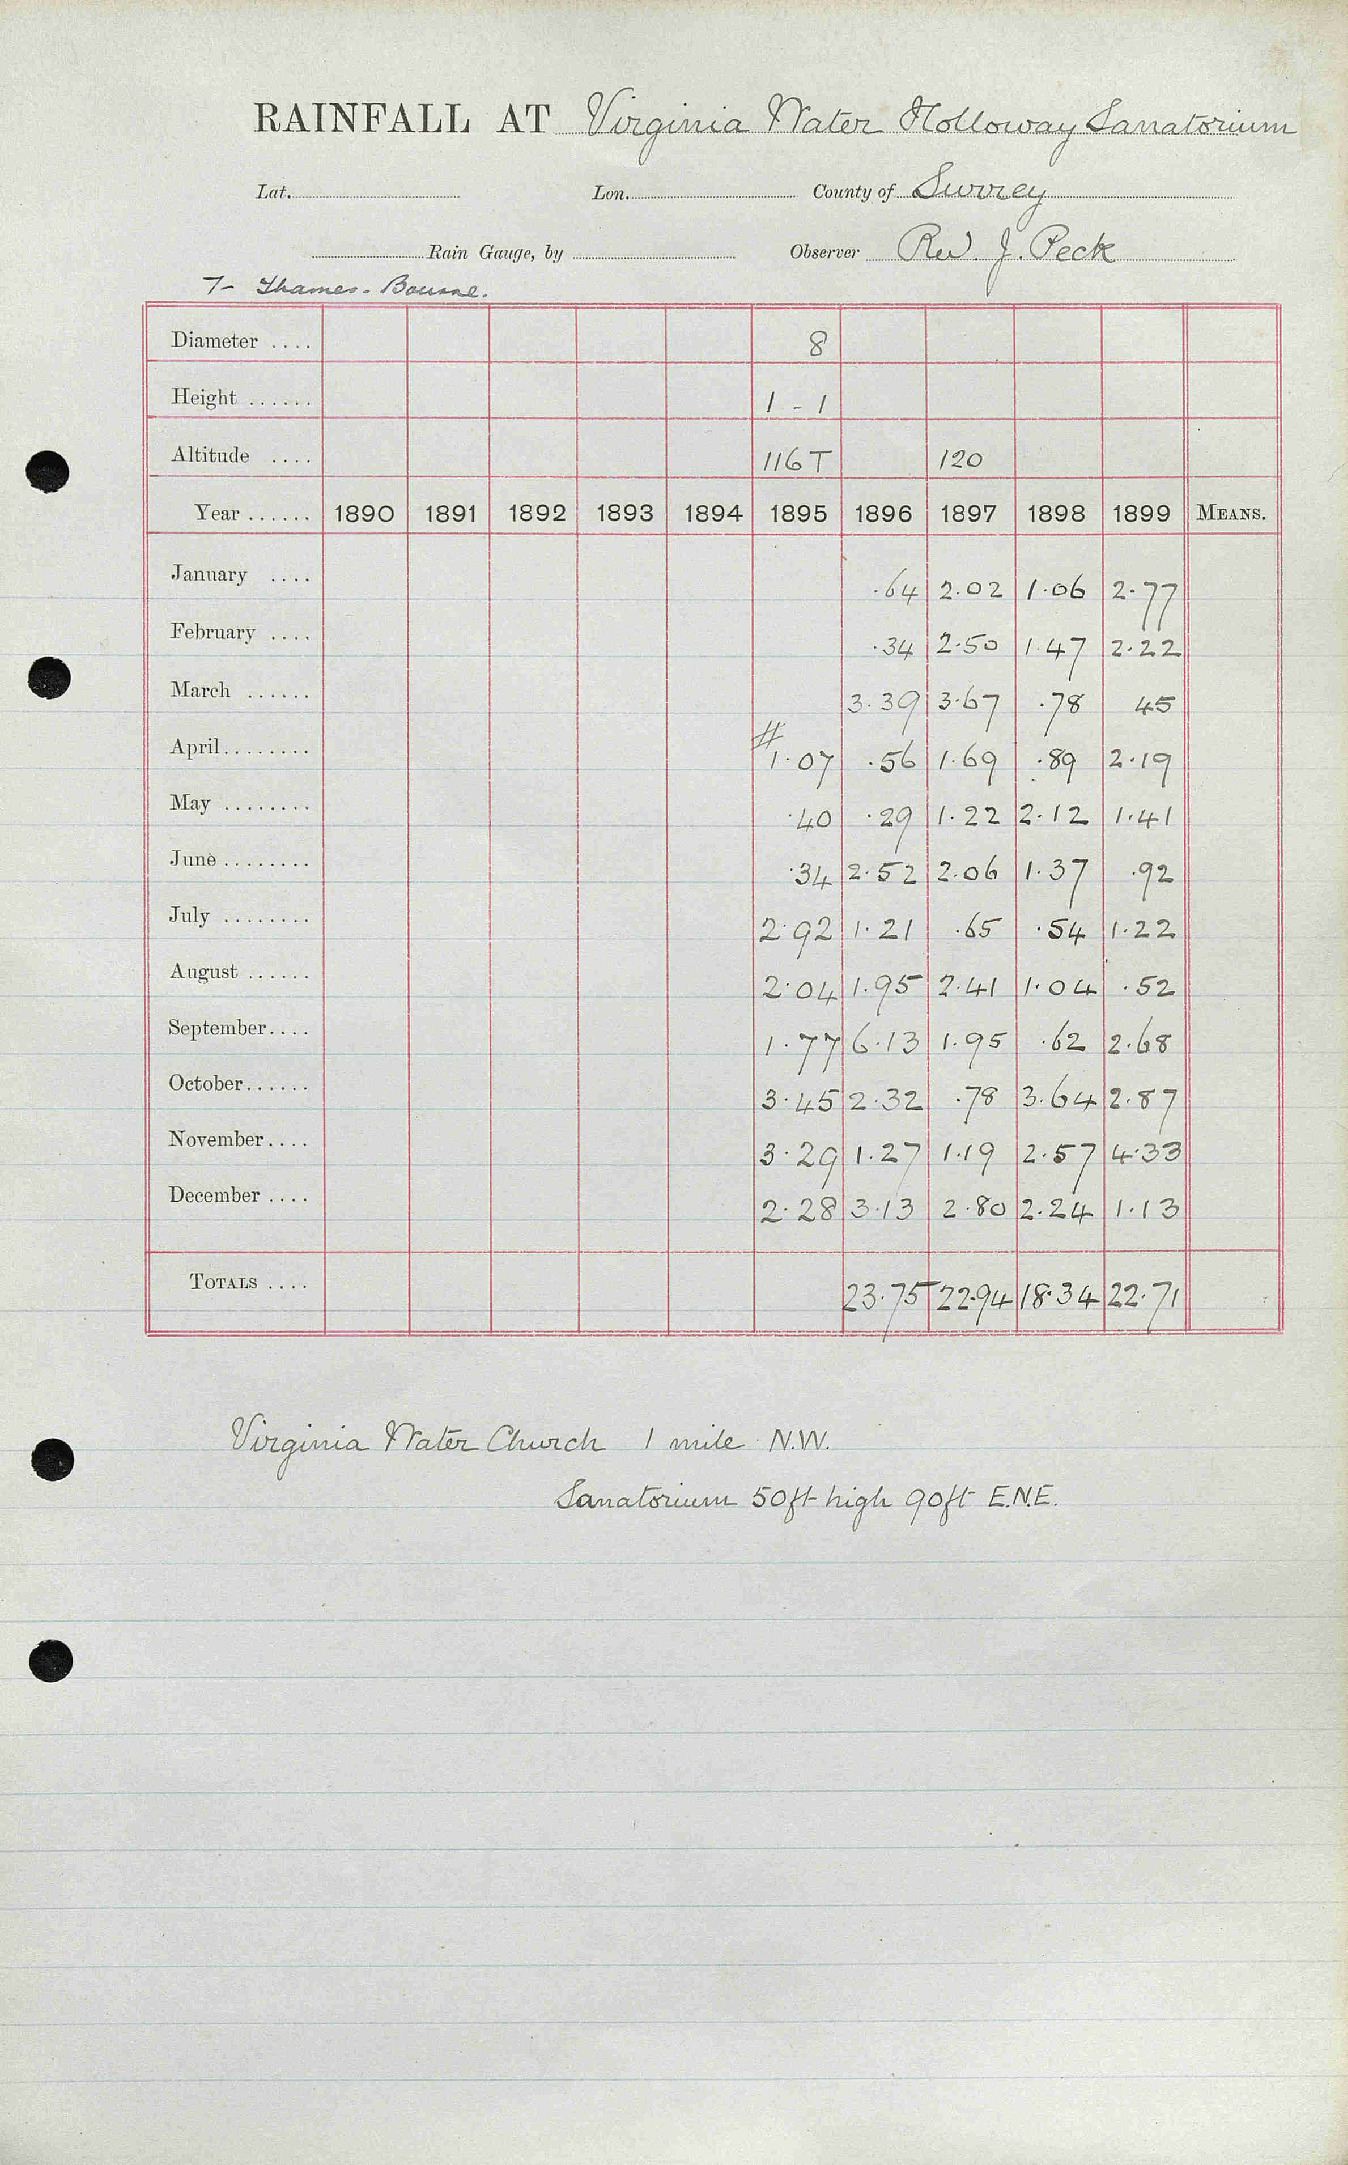 RAINFALL AT Virginia Water Holloway Sanatorium
Lat. Lon. County of Surrey
Rain Gauge, by Observer Rev. J. Peck
7- Thames - Bourne.
Diameter .... 8
Height ...... 1 - 1
Altitude .... 116 T 120
Year ...... 1890 1891 1892 1893 1894 1895 1896 1897 1898 1899 MEANS.
January .... .64 2.02 1.06 2.77
February .... .34 2.50 1.47 2.22
March ...... 3.39 3.67 .78 45
April ........ # 1.07 .56 1.69 .89 2.19
May ........ .40 .29 1.22 2.12 1.41
June ........ .34 2.52 2.06 1.37 .92
July ........ 2.92 1.21 .65 .54 1.22
August ...... 2.04 1.95 2.41 1.04 .52
September.... 1.77 6.13 1.95 .62 2.68
October...... 3.45 2.32 .78 3.64 2.87
November.... 3.29 1.27 1.19 2.57 4.33
December .... 2.28 3.13 2.80 2.24 1.13
TOTALS .... 23.75 22.94 18.34 22.71
Virginia Water Church 1 mile N.W.
Sanatorium 50ft high 90ft E.N.E.